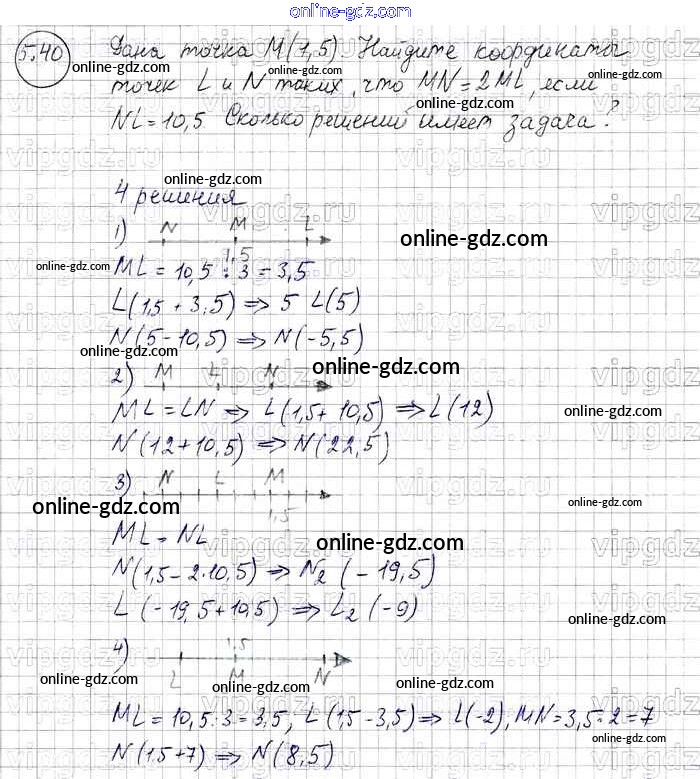 5.40 Дана точка M(1,5). Найдите координаты
точек L и N таких, что MN=2ML, если
NL=10,5. Сколько решений имеет задача?
4 решения
1) N M L
1,5
ML = 10,5 : 3 = 3,5
L(1,5 + 3,5) ⇒ 5 L(5)
N(5-10,5) ⇒ N(-5,5)
2) M L N
ML = LN ⇒ L(1,5+10,5) ⇒ L(12)
N(12+10,5) ⇒ N(22,5)
3) N L M
1,5
ML = NL
N(1,5-2·10,5) ⇒ N₂ (-19,5)
L (-19,5+10,5) ⇒ L₂(-9)
4) 1,5
L M N
ML = 10,5:3=3,5, L(1,5-3,5) ⇒ L(-2), MN=3,5·2=7
N(1,5+7) ⇒ N(8,5)
online-gdz.com
online-gdz.com
online-gdz.com
online-gdz.com
online-gdz.com
online-gdz.com
online-gdz.com
online-gdz.com
online-gdz.com
online-gdz.com
online-gdz.com
online-gdz.com
online-gdz.com
online-gdz.com
online-gdz.com
online-gdz.com
online-gdz.com
online-gdz.com
online-gdz.com
online-gdz.com